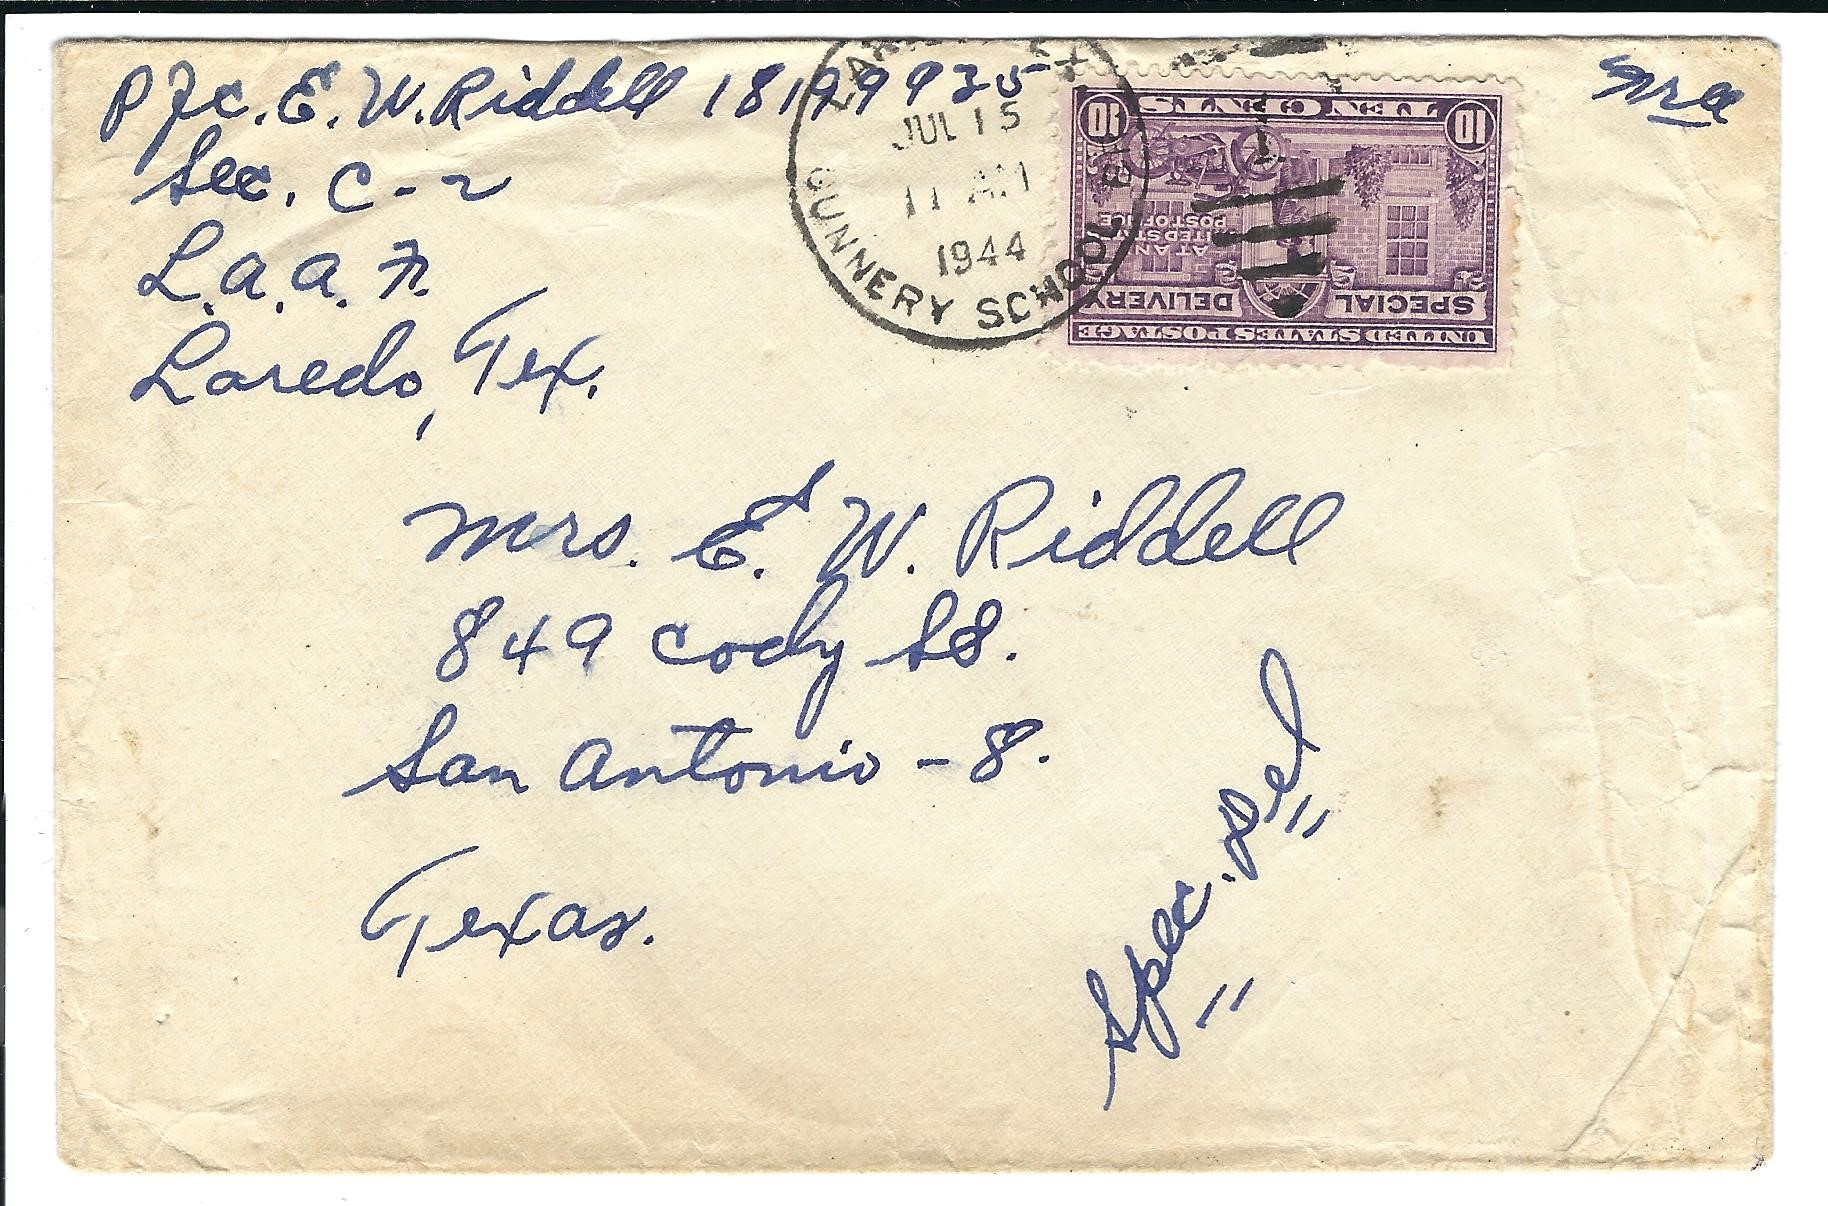 Pfc. E. W. Riddell 18199925
Sec. C-2
L.A.A.F.
Laredo, Tex.
JUL 15
11 AM
1944
GUNNERY SCHOOL
TEN CENTS
10 10
AT AN
POST OFFICE
SPECIAL DELIVERY
UNITED STATES POSTAGE
Mrs. E. W. Riddell
849 Cody St.
San Antonio - 8.
Texas.
Spec. Del